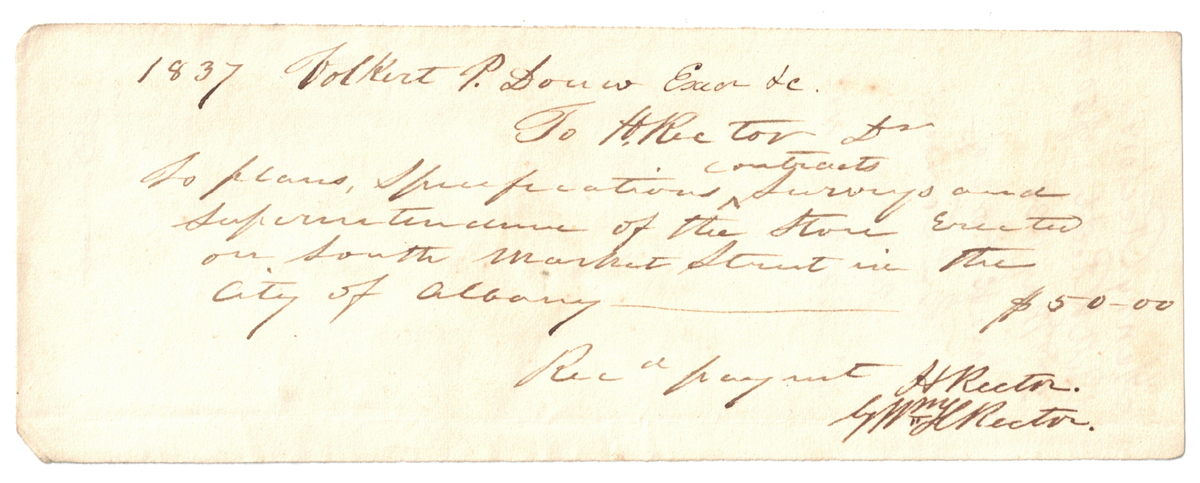 1837 Volkert P. Douw Exor &c.
To H. Rector Dr
contracts
To plans, Specifications, ^ Surveys and
Superintendence of the Store Erected
on South Market Street in the
City of Albany $50-00
Recd paymt H Rector.
by Wm H Rector.